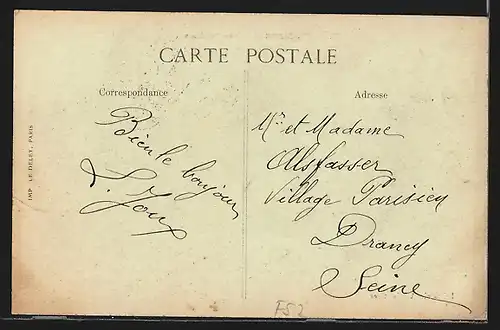 CARTE POSTALE
Correspondance
Adresse
Bien le bonjour
L. Joux
Mr et Madame
Alsfasser
Village Parisien
Drancy
Seine
IMP. LE DELEY, PARIS
F52